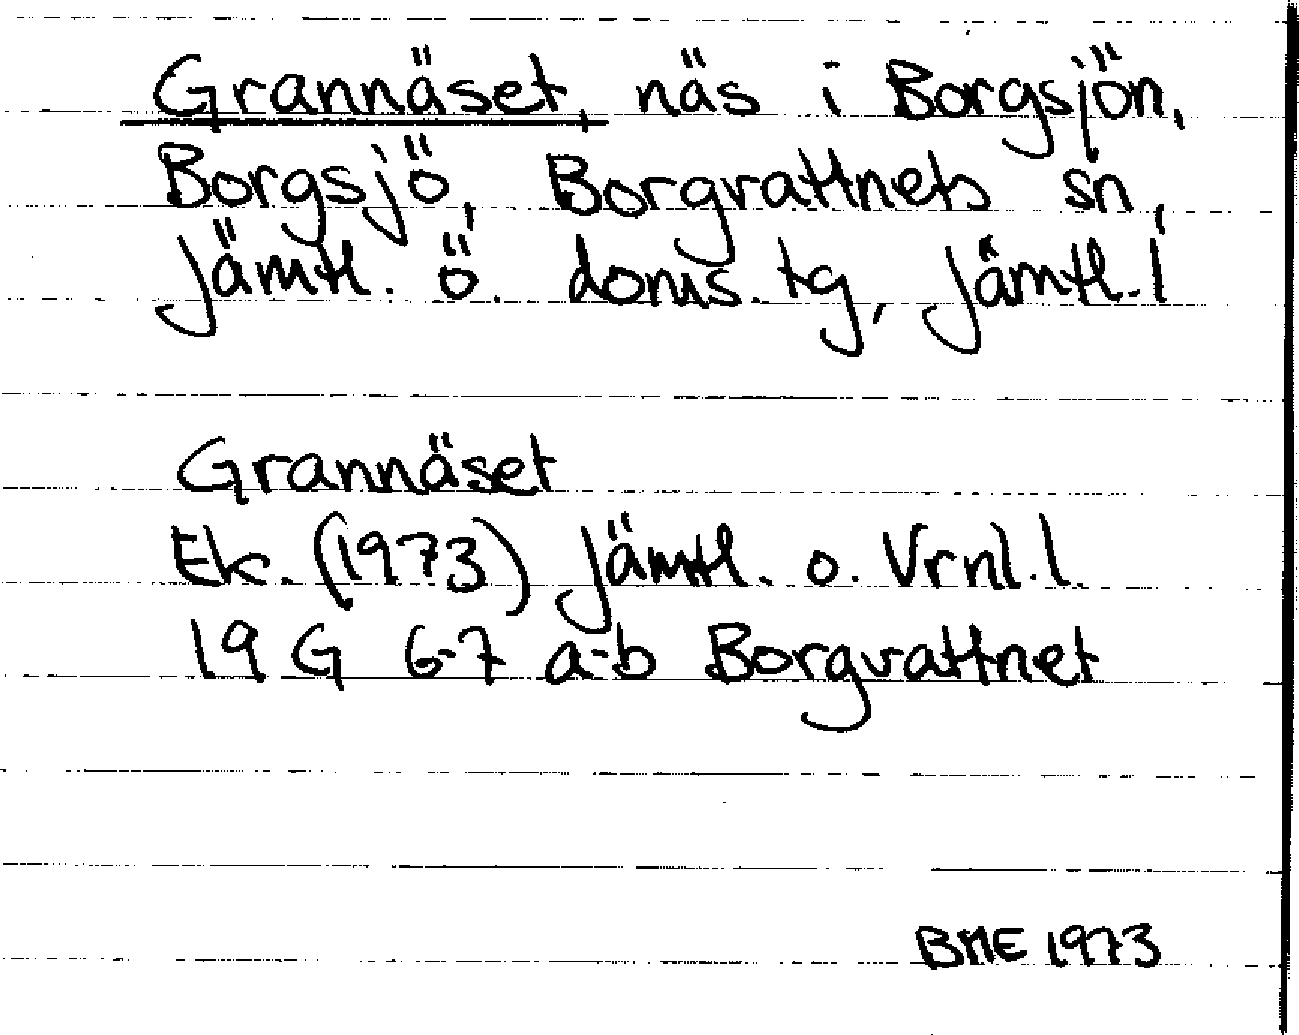 Grannäset, näs i Borgsjön,
Borgsjö, Borgvattnets sn,
Jämtl. ö. doms. tg, Jämtl. l
Grannäset
Ek. (1973) Jämtl. o. Vrnl. l.
19 G 6-7 a-b Borgvattnet
BME 1973